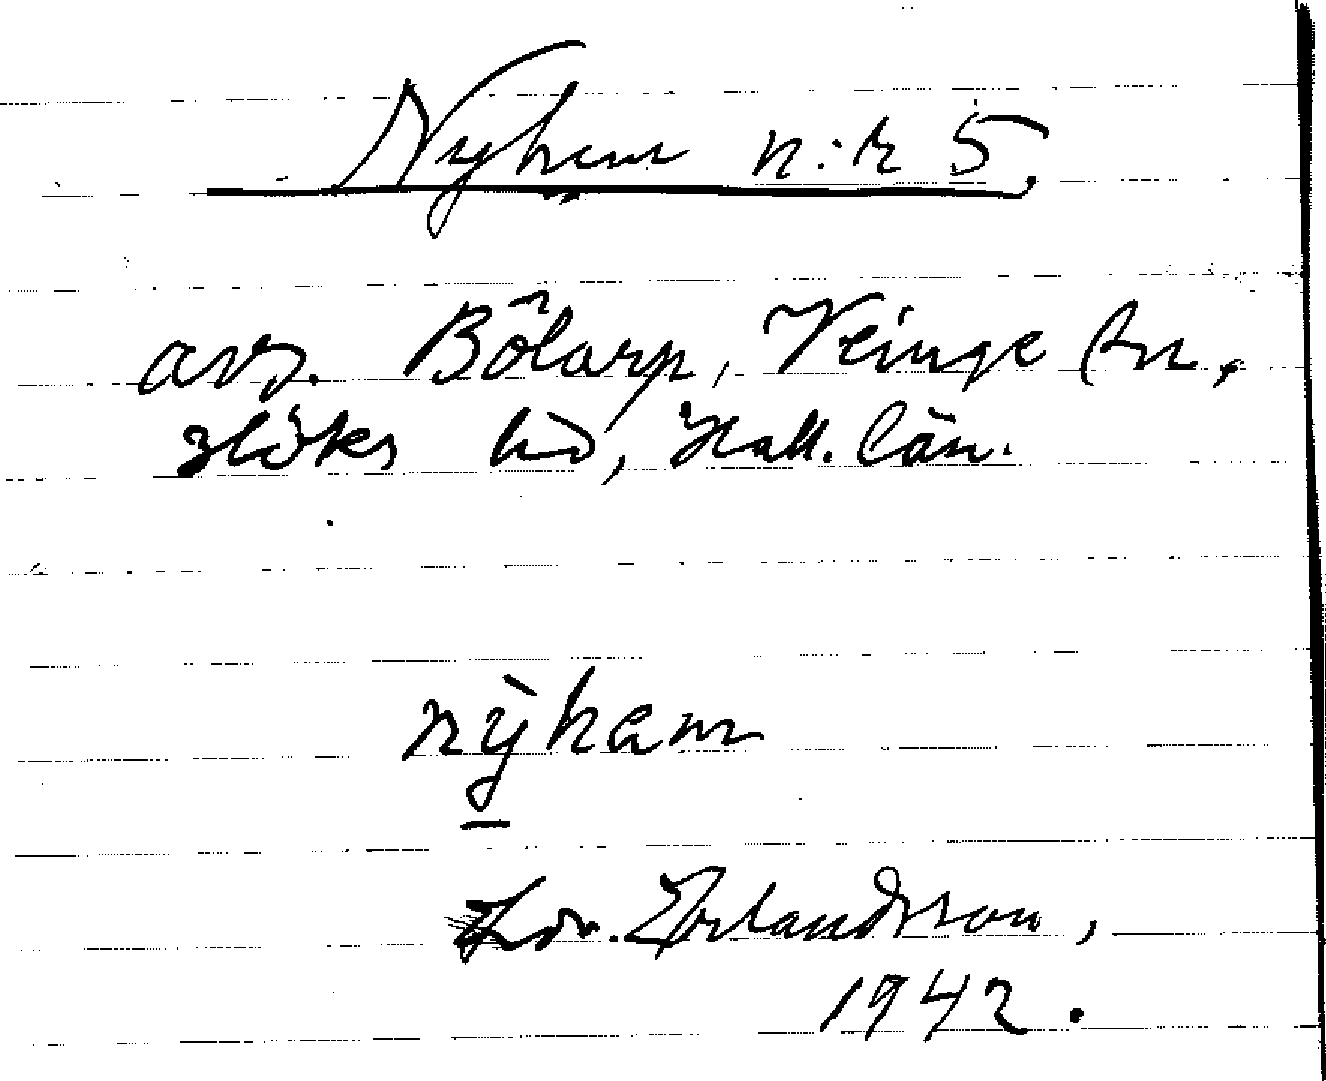 Nyhem n:r 5.
avs. Bölarp, Veinge sn,
Höks hd, Hall. län.
nỳham
Erlandsson,
1942.